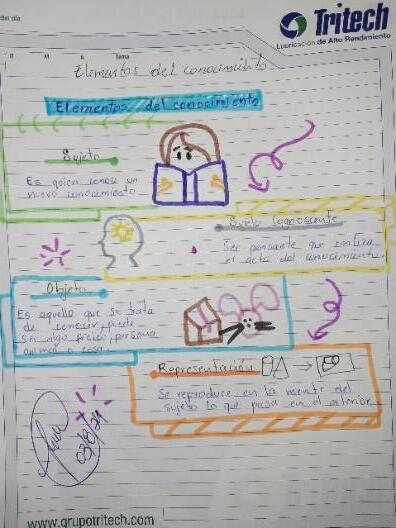 del día
Tritech
Lubricación de Alto Rendimiento
D M A Tema
Elementos del conocimiento
Elementos del conocimiento
Sujeto
Es quien conoce un
nuevo conocimiento
Sujeto Cognoscente
Ser pensante que realiza
el acto del conocimiento.
Objeto
Es aquello que se trata
de conocer, puede
ser algo físico, persona
animal o cosa.
Representación
Se reproduce en la mente del
sujeto lo que pasa en el exterior
www.grupotritech.com